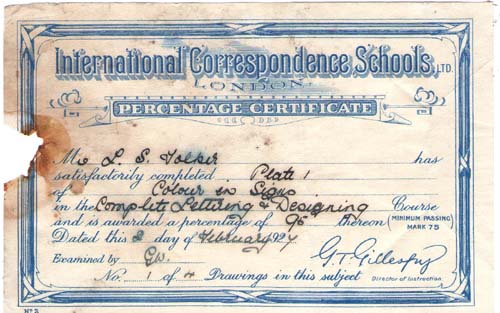 International Correspondence Schools, LTD.
LONDON.
PERCENTAGE CERTIFICATE
Mr L. S. has
satisfactorily completed Plate 1
of Colour in Signs
in the Complete Lettering & Designing Course
and is awarded a percentage of 95 thereon (MINIMUM PASSING MARK 75
Dated this day of February 192
Examined by
No. 1 of Drawings in this subject
G.T. Gillespy
Director of Instruction.
Nº 2